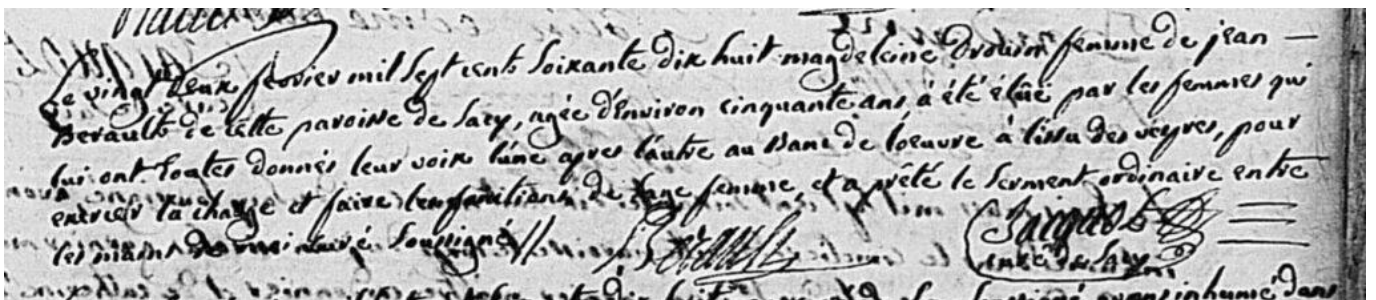 Le vingt deux fevrier mil sept cents soixante dix huit magdeleine Drouin femme de jean —
Berault de cette paroisse de Sacy, agée d'Environ cinquante ans à été élüe par les femmes qui
lui ont toutes donnés leur voix l'une apres l'autre au Banc de l'oeuvre à l'issu des vepres, pour
exercer la charge et faire les fonctions de sage femme, et a prété le serment ordinaire entre
les mains de moi curé soussigné
Berault
curé de Sacy